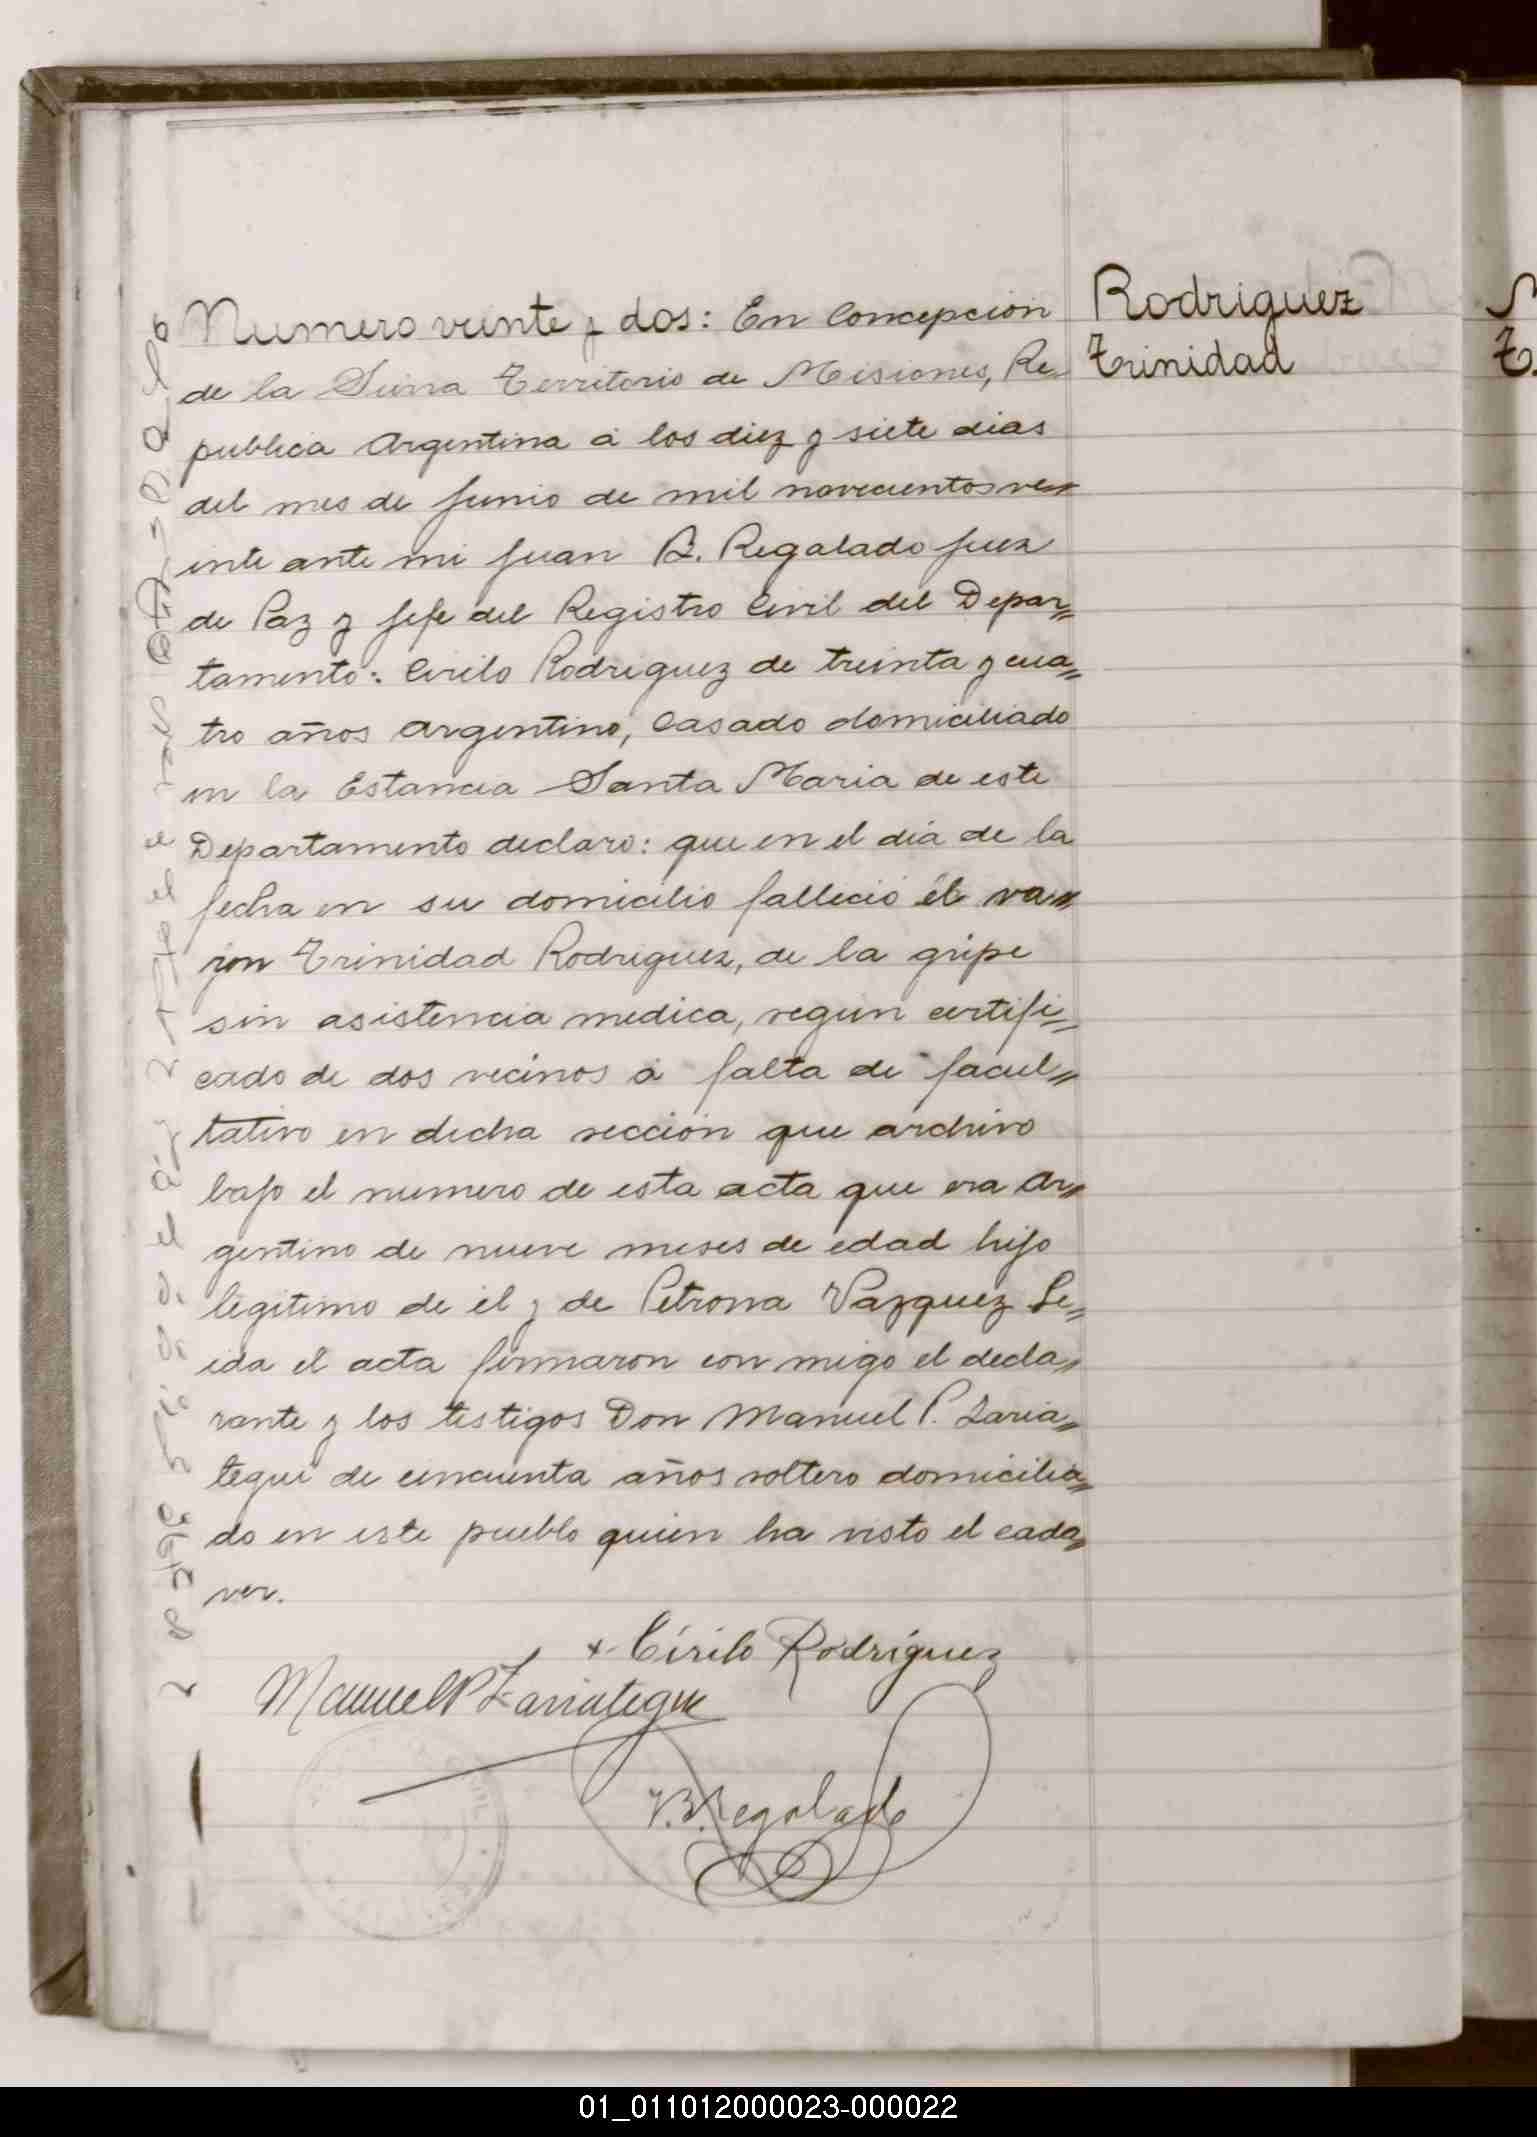 Numero veinte y dos: En Concepcion
de la Sierra Territorio de Misiones, Re
publica Argentina á los diez y siete dias
del mes de Junio de mil novecientos ve
inte ante mi Juan B. Regalado Juez
de Paz y Jefe del Registro Civil del Depar
tamento: Cirilo Rodriguez de treinta y cua
tro años argentino, Casado domiciliado
en la Estancia Santa Maria de este
Departamento declaro: que en el dia de la
fecha en su domicilio falleció el va
ron Trinidad Rodriguez, de la gripe
sin asistencia medica, segun certifi
cado de dos vecinos á falta de facul
tativo en dicha sección que archivo
bajo el numero de esta acta que era ar
gentino de nueve meses de edad hijo
legitimo de él y de Petrona Vazquez Le
ida el acta firmaron con migo el decla
rante y los testigos Don Manuel P. Zaria
tegui de cincuenta años soltero domicilia
do en este pueblo quien ha visto el cada
ver.
x Cirilo Rodriguez
Manuel P Zariategui
J.B. Regalado
Rodriguez
Trinidad
01_011012000023-000022